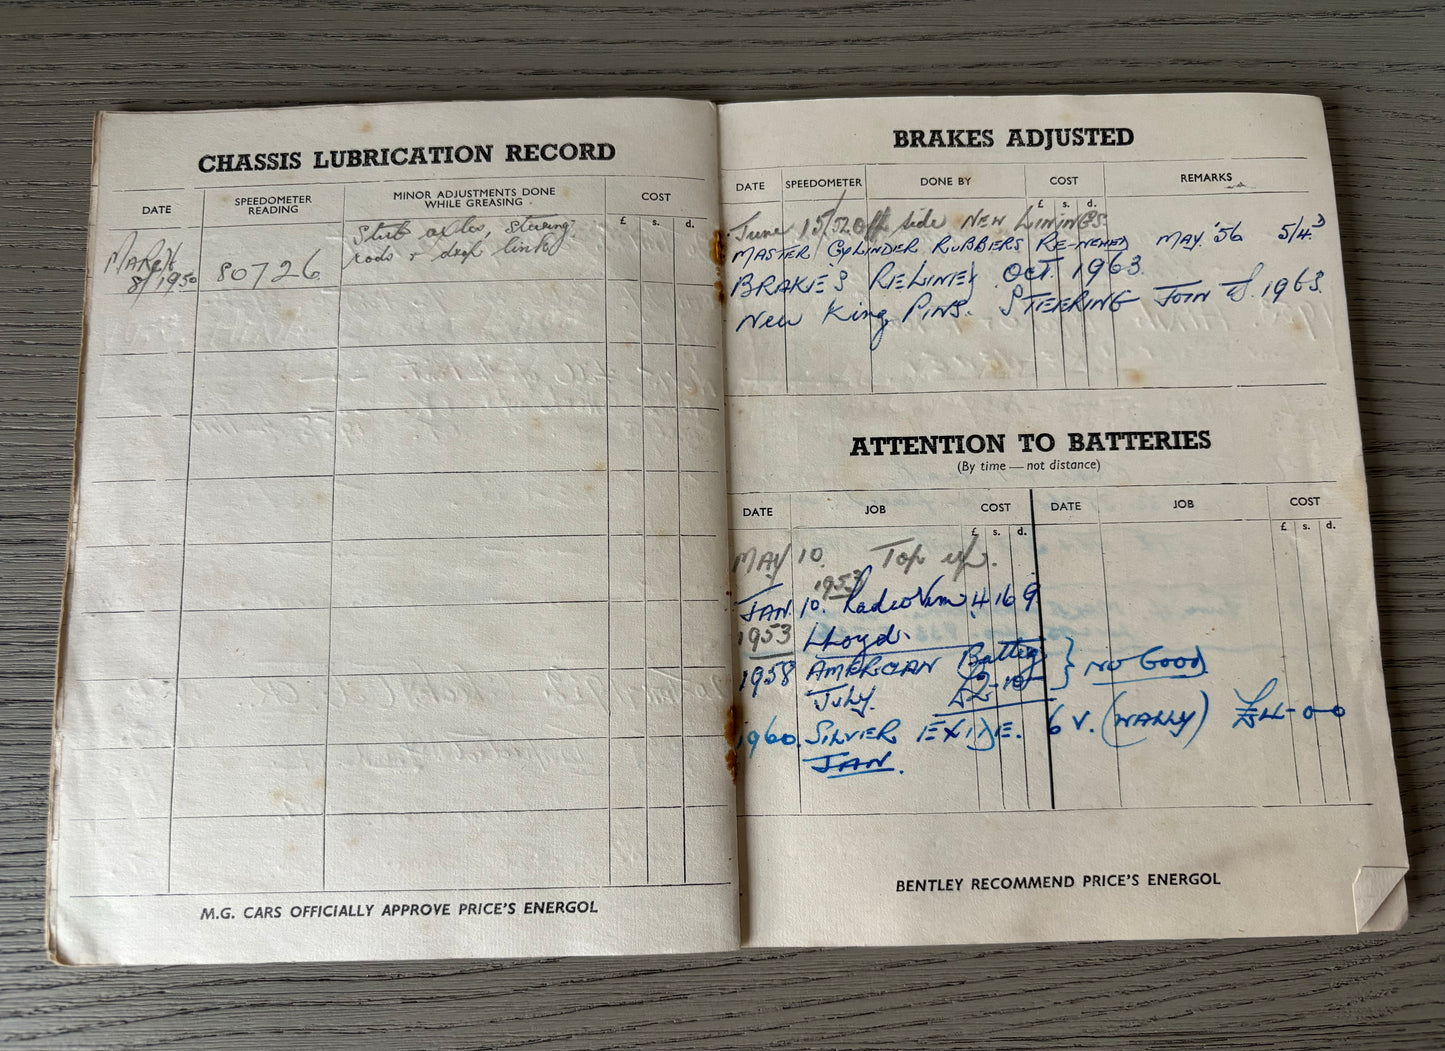 CHASSIS LUBRICATION RECORD
DATE SPEEDOMETER READING MINOR ADJUSTMENTS DONE WHILE GREASING COST
£ s. d.
MARCH 8/1950 80726 Stub axles, steering
rods & drop links
M.G. CARS OFFICIALLY APPROVE PRICE'S ENERGOL
BRAKES ADJUSTED
DATE SPEEDOMETER DONE BY COST REMARKS
£ s. d.
June 15/52 Off side NEW LININGS
MASTER CYLINDER RUBBERS RE-NEWED MAY '56 5/4.d
BRAKE'S RELINED OCT. 1963.
New King PINS. STEERING JOINTS. 1963.
ATTENTION TO BATTERIES
(By time — not distance)
DATE JOB COST DATE JOB COST
£ s. d. £ s. d.
MAY 10. Top up.
1953
JAN. 10. 4 16 9
1953 Lloyd.
1958 AMERICAN Battery } NO GOOD
July. £2-10
1960. SILVER EXIDE. 6 V. (WALLY) £4-0-0
JAN.
BENTLEY RECOMMEND PRICE'S ENERGOL